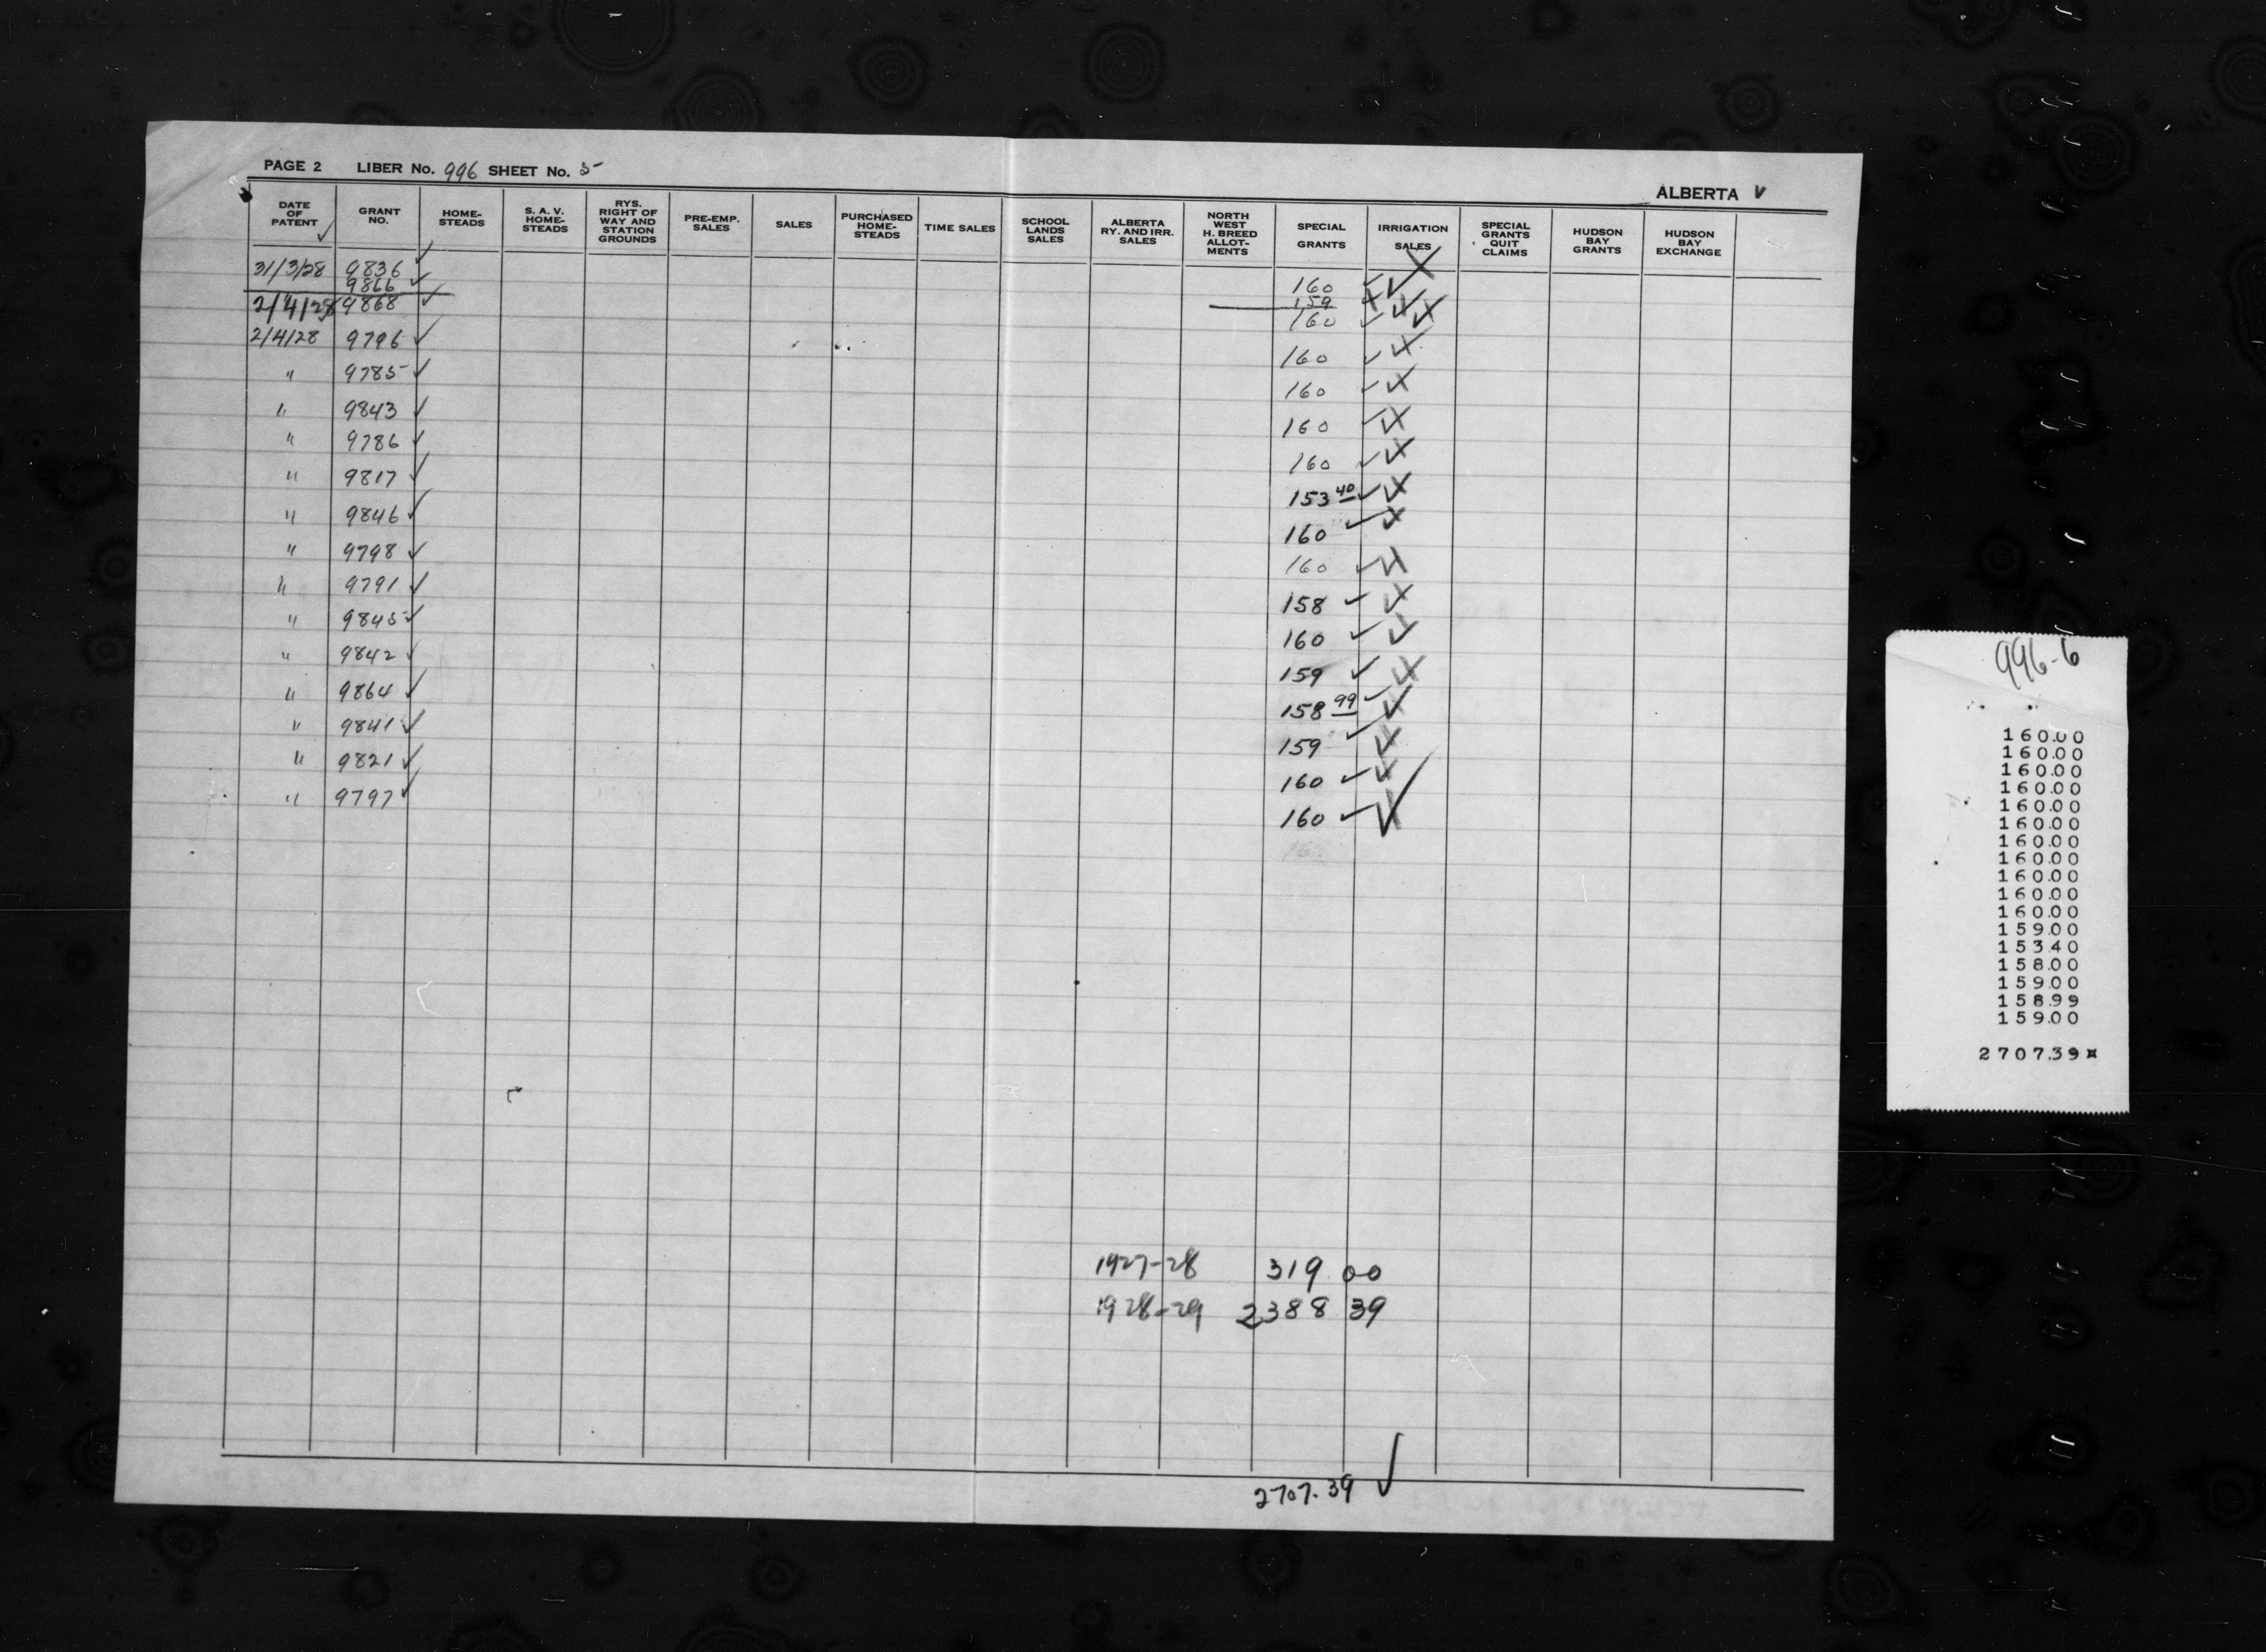 PAGE 2 LIBER No. 996 SHEET No. 5
ALBERTA
DATE OF PATENT
GRANT NO.
HOME-STEADS
S. A. V. HOME-STEADS
RYS. RIGHT OF WAY AND STATION GROUNDS
PRE-EMP. SALES
SALES
PURCHASED HOME-STEADS
TIME SALES
SCHOOL LANDS SALES
ALBERTA RY. AND IRR. SALES
NORTH WEST H. BREED ALLOT-MENTS
SPECIAL GRANTS
IRRIGATION SALES
SPECIAL GRANTS QUIT CLAIMS
HUDSON BAY GRANTS
HUDSON BAY EXCHANGE
31/3/28 9836 160
9866 159
2/4/28 9868 160
2/4/28 9796 160
" 9785 160
" 9843 160
" 9786 160
" 9817 153 40
" 9846 160
" 9798 160
" 9791 158
" 9845 160
" 9842 159
" 9864 158 99
" 9841 159
" 9821 160
" 9797 160
1927-28 319 00
1928-29 2388 39
2707.39
996-6
160.00
160.00
160.00
160.00
160.00
160.00
160.00
160.00
160.00
160.00
160.00
159.00
153.40
158.00
159.00
158.99
159.00
2707.39¤